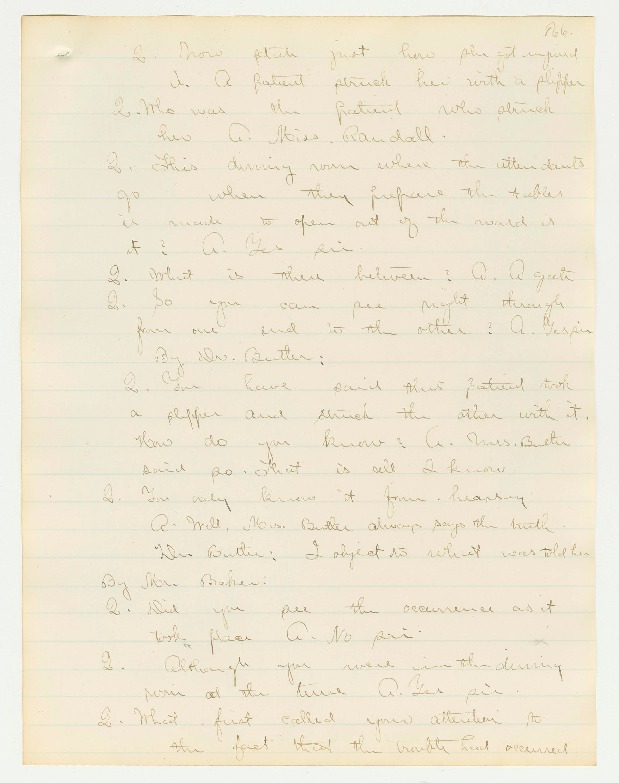 766.
Q. Now state just how she got injured
A. A patient struck her with a slipper
Q. Who was the patient who struck
her A. Miss. Randall.
Q. This dining room where the attendants
go when they prepare the tables
is made to open out of the ward is
it? A. Yes sir.
Q. What is there between? A. A gate
Q. So you can see right through
from one end to the other? A. Yes sir
By Dr. Butler:
Q. You have said this patient took
a slipper and struck the other with it.
How do you know? A. Mrs. Butler
said so. That is all I know.
Q. You only know it from hearsay
A. Well, Mrs. Butler always says the truth.
Dr. Butler: I object to what was told her
By Mr. Baker:
Q. Did you see the occurrence as it
took place A. No sir.
Q. Although you were in the dining
room at the time A. Yes sir.
Q. What first called your attention to
the fact that the trouble had occurred